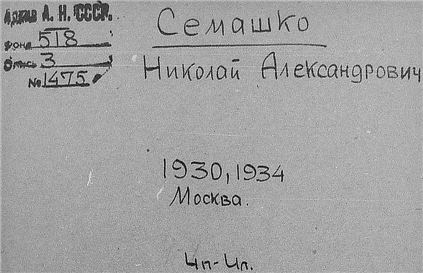 Архив А. Н. СССР.
Фонд 518
Опись 3
№ 1475
Семашко
Николай Александрович
1930, 1934
Москва.
4п-4л.